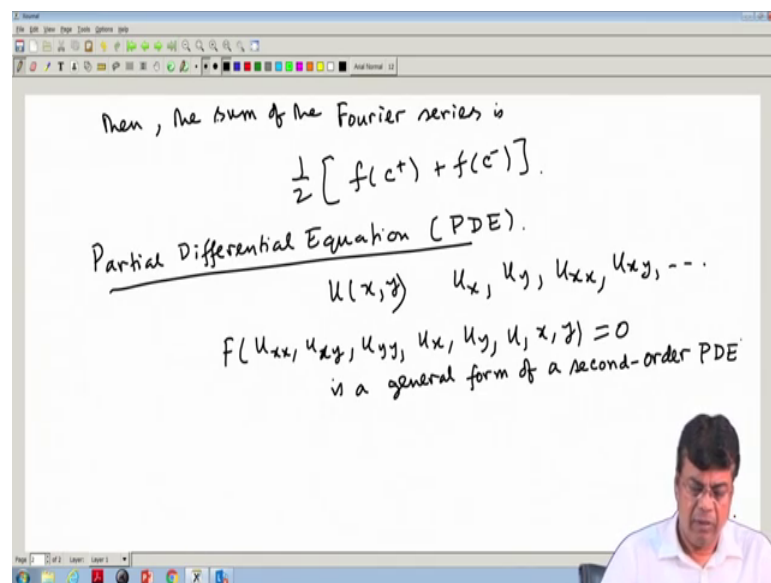 Journal
File Edit View Page Tools Options Help
Arial Normal 12
Then, the sum of the Fourier series is
1/2 [ f(c⁺) + f(c⁻) ].
Partial Differential Equation (PDE).
u(x,y) u_x, u_y, u_xx, u_xy, ---.
F(u_xx, u_xy, u_yy, u_x, u_y, u, x, y) = 0
is a general form of a second-order PDE
Page 2 of 2 Layer: Layer 1